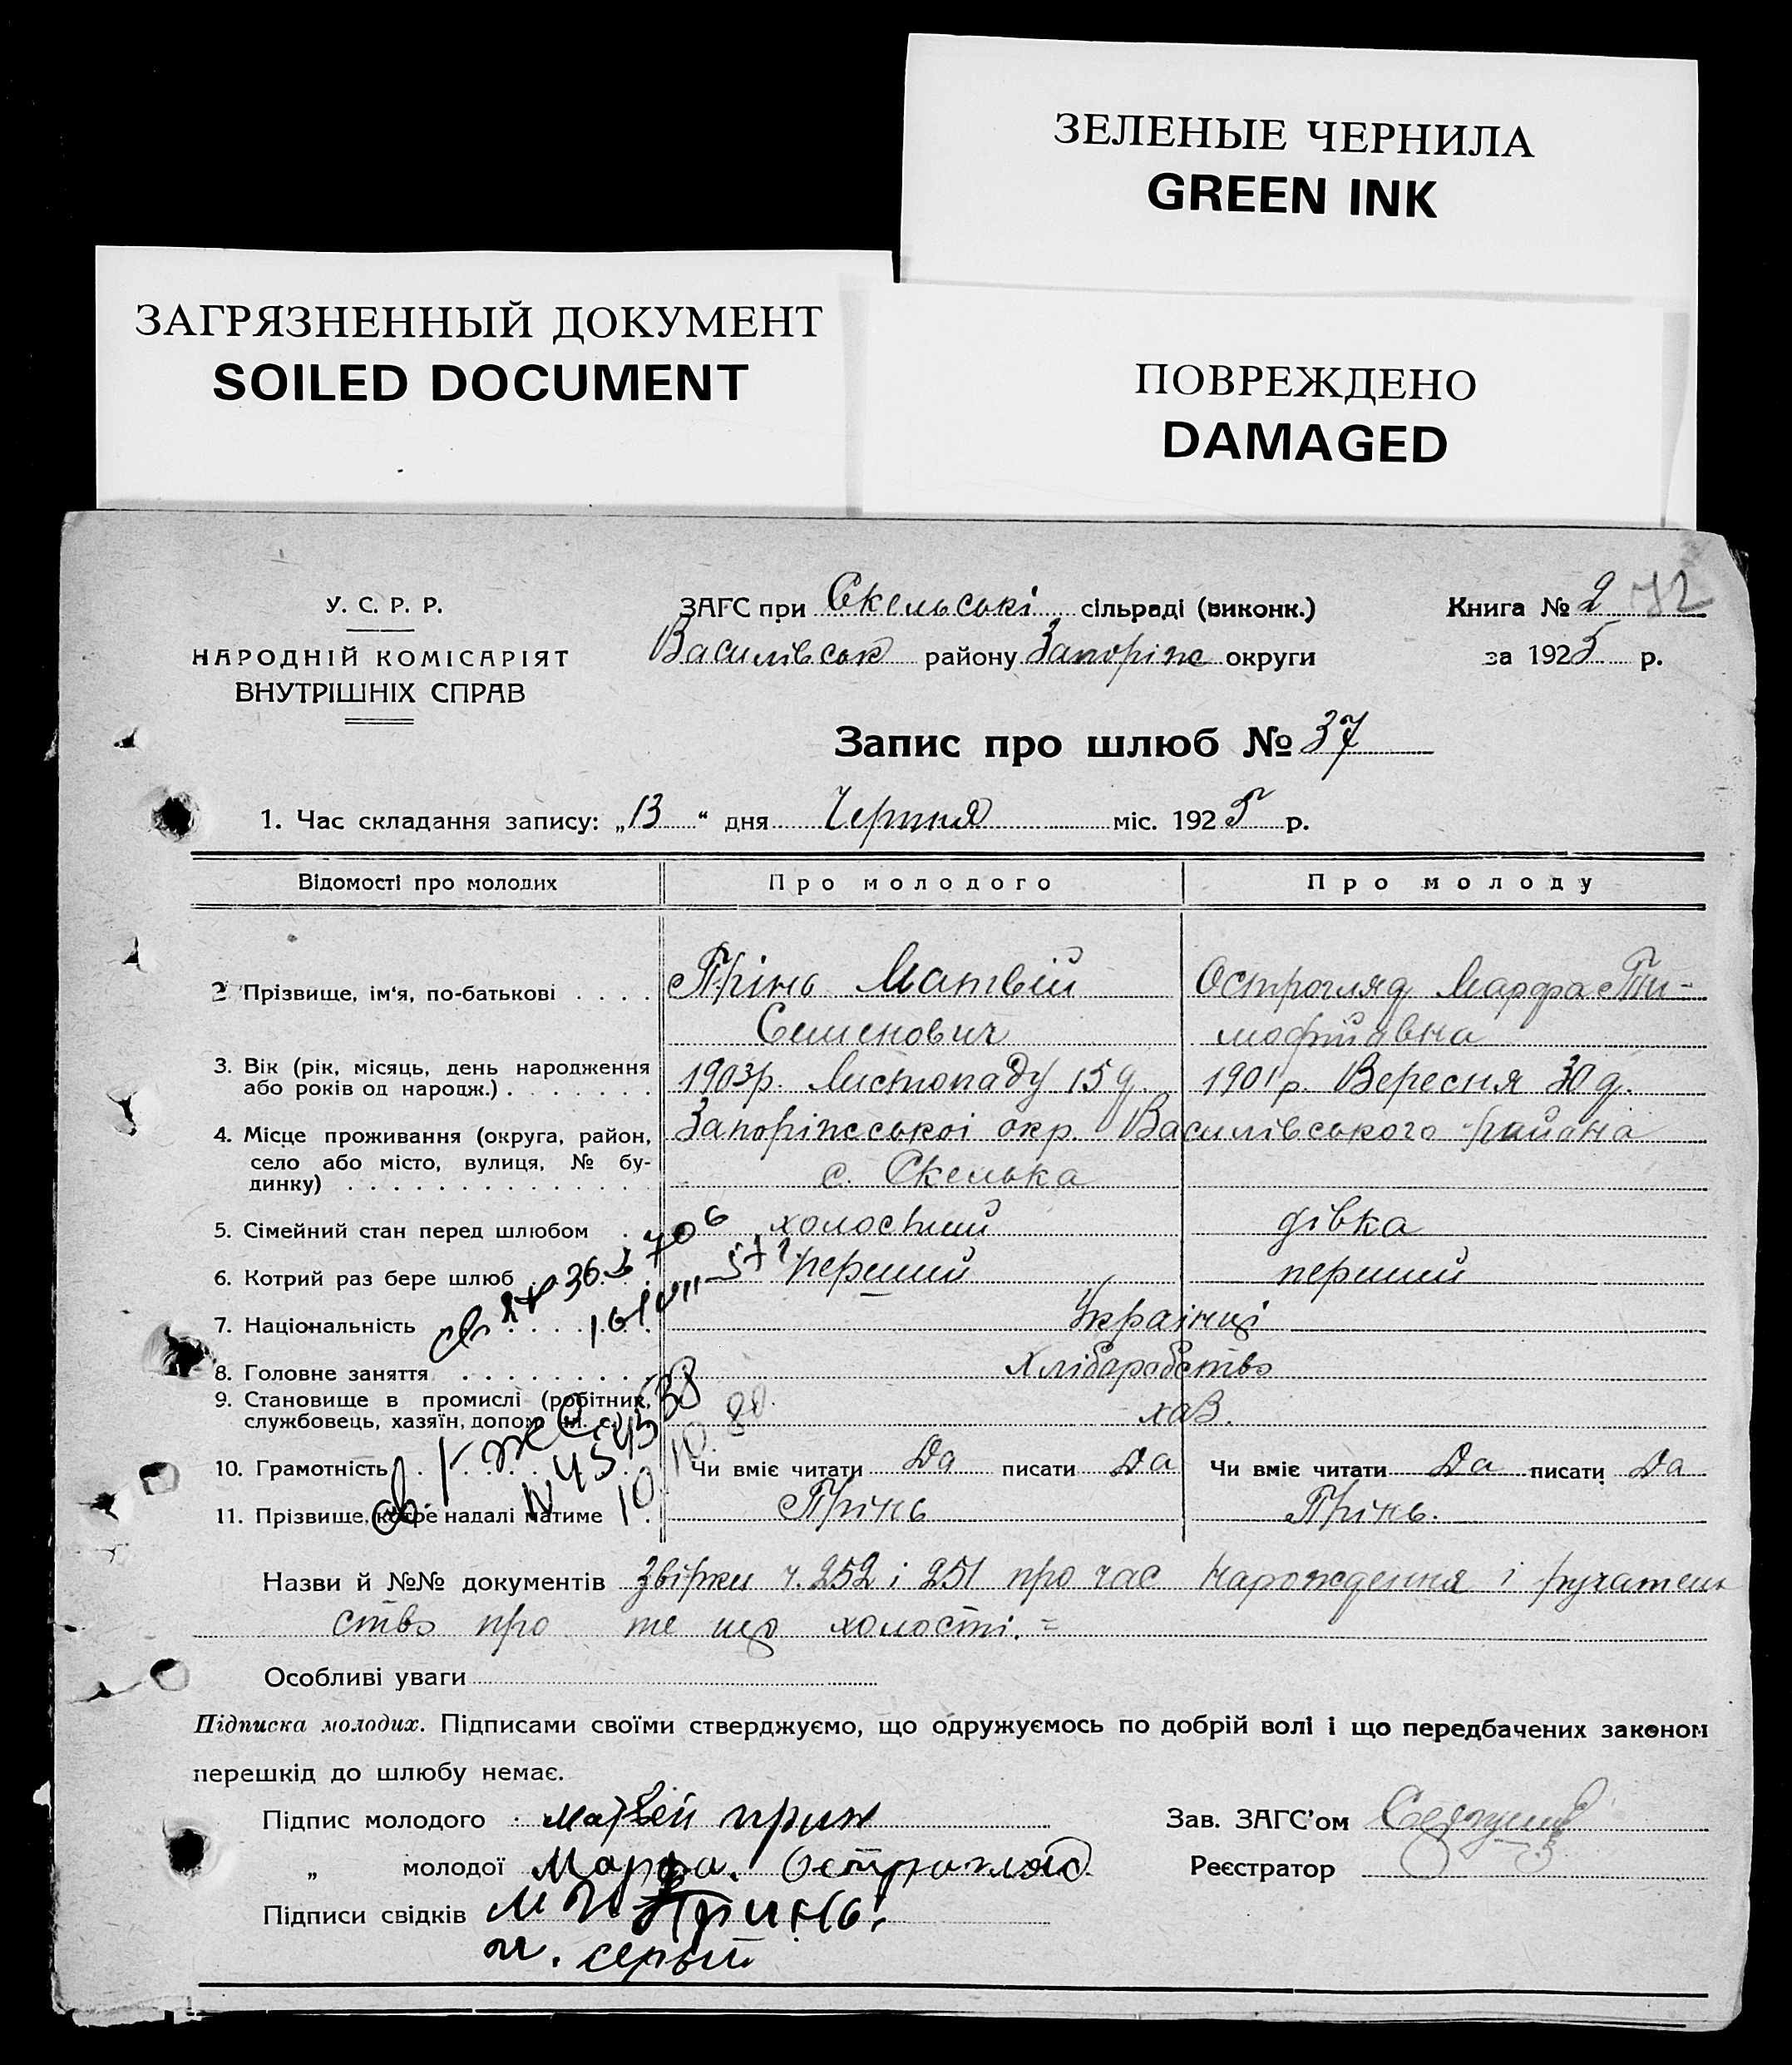 ЗЕЛЕНЫЕ ЧЕРНИЛА
GREEN INK
ЗАГРЯЗНЕННЫЙ ДОКУМЕНТ
SOILED DOCUMENT
ПОВРЕЖДЕНО
DAMAGED
У. С. Р. Р.
НАРОДНІЙ КОМІСАРІЯТ
ВНУТРІШНІХ СПРАВ
ЗАГС при Скельські сільраді (виконк.)
Василівськ району Запоріж округи
Книга № 2 72
за 1925 р.
Запис про шлюб № 37
1. Час складання запису: „13" дня Червня міс. 1925 р.
Відомості про молодих Про молодого Про молоду
2 Прізвище, ім'я, по-батькові . . . . Прінь Матвій Острогляд Марфа Ти-
Семенович мофіївна
3. Вік (рік, місяць, день народження
або років од народж.) . . . . . . . 1903р. Листопаду 15 д. 1901 р. Вересня 30 д.
4. Місце проживання (округа, район, Запоріжської окр. Василівського району
село або місто, вулиця, № бу-
динку) . . . . . . . . . . . . . с. Скелька
5. Сімейний стан перед шлюбом холостий дівка
6. Котрий раз бере шлюб перший перший
7. Національність Українці
8. Головне заняття Хліборобство
9. Становище в промислі (робітник,
службовець, хазяїн, допом. чл. с.) хаз.
10. Грамотність Чи вміє читати Да писати Да Чи вміє читати Да писати Да
11. Прізвище, котре надалі матиме Прінь Прінь.
Назви й №№ документів Звірки ч. 252 і 251 про час народження і ручатель
ство про те що холості. =
Особливі уваги
Підписка молодих. Підписами своїми стверджуємо, що одружуємось по добрій волі і що передбачених законом
перешкід до шлюбу немає.
Підпис молодого матвей прин Зав. ЗАГС'ом
„ молодої Марфа. Острогляд Реєстратор
Підписи свідків Принь
серый